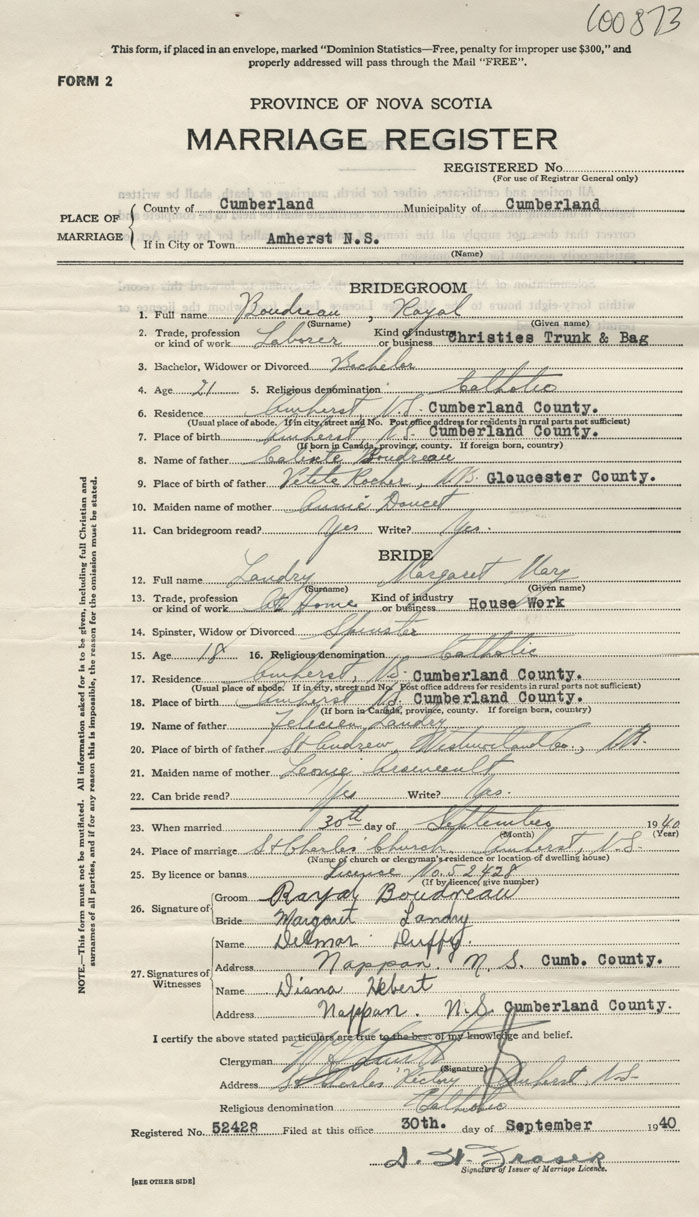 100873
This form, if placed in an envelope, marked "Dominion Statistics—Free, penalty for improper use $300," and
properly addressed will pass through the Mail "FREE".
FORM 2
PROVINCE OF NOVA SCOTIA
MARRIAGE REGISTER
REGISTERED No.
(For use of Registrar General only)
PLACE OF MARRIAGE
County of Cumberland Municipality of Cumberland
If in City or Town Amherst N.S.
(Name)
BRIDEGROOM
1. Full name Boudreau, Royal
(Surname) (Given name)
2. Trade, profession or kind of work Laborer Kind of industry or business Christies Trunk & Bag
3. Bachelor, Widower or Divorced Bachelor
4. Age 21 5. Religious denomination Catholic
6. Residence Amherst, N.S. Cumberland County.
(Usual place of abode. If in city, street and No. Post office address for residents in rural parts not sufficient)
7. Place of birth Amherst, N.S. Cumberland County.
(If born in Canada, province, county. If foreign born, country)
8. Name of father Calixte Boudreau
9. Place of birth of father Petite Rocher, N.B. Gloucester County.
10. Maiden name of mother Annie Doucet
11. Can bridegroom read? Yes Write? Yes.
BRIDE
12. Full name Landry Margaret Mary
(Surname) (Given name)
13. Trade, profession or kind of work At Home Kind of industry or business House Work
14. Spinster, Widow or Divorced Spinster
15. Age 18 16. Religious denomination Catholic
17. Residence Amherst, N.S. Cumberland County.
(Usual place of abode. If in city, street and No. Post office address for residents in rural parts not sufficient)
18. Place of birth Amherst, N.S. Cumberland County.
(If born in Canada, province, county. If foreign born, country)
19. Name of father Felicien Landry
20. Place of birth of father St Andrew, Westmorland Co., N.B.
21. Maiden name of mother Leonie Arseneault
22. Can bride read? Yes Write? Yes.
23. When married 30th day of September 1940
(Month) (Year)
24. Place of marriage St Charles Church, Amherst, N.S.
(Name of church or clergyman's residence or location of dwelling house)
25. By licence or banns License No. 52428
(If by licence, give number)
26. Signature of
Groom Royal Boudreau
Bride Margaret Landry
27. Signatures of Witnesses
Name Delmar Duffy.
Address Nappan. N. S. Cumb. County.
Name Diana Hebert
Address Nappan. N.S. Cumberland County.
I certify the above stated particulars are true to the best of my knowledge and belief.
Clergyman
(Signature)
Address St Charles Rectory Amherst, N.S.
Religious denomination Catholic
Registered No. 52428 Filed at this office 30th. day of September 1940
Signature of Issuer of Marriage Licence.
[SEE OTHER SIDE]
NOTE.—This form must not be mutilated. All information asked for is to be given, including full Christian and
surnames of all parties, and if for any reason this is impossible, the reason for the omission must be stated.